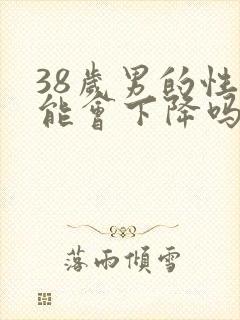 38歲男的性
能會下降吗
落雨傾雪